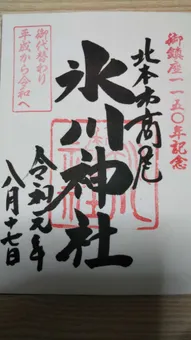 御鎮座一一五〇年記念
北本市高尾
氷川神社
令和元年
八月十七日
御代替わり
平成から令和へ